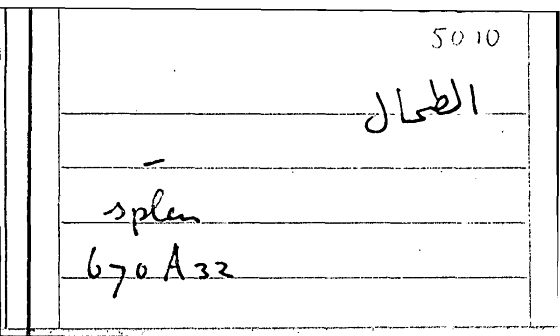 5010
الطحال
–
splen
670 A 32